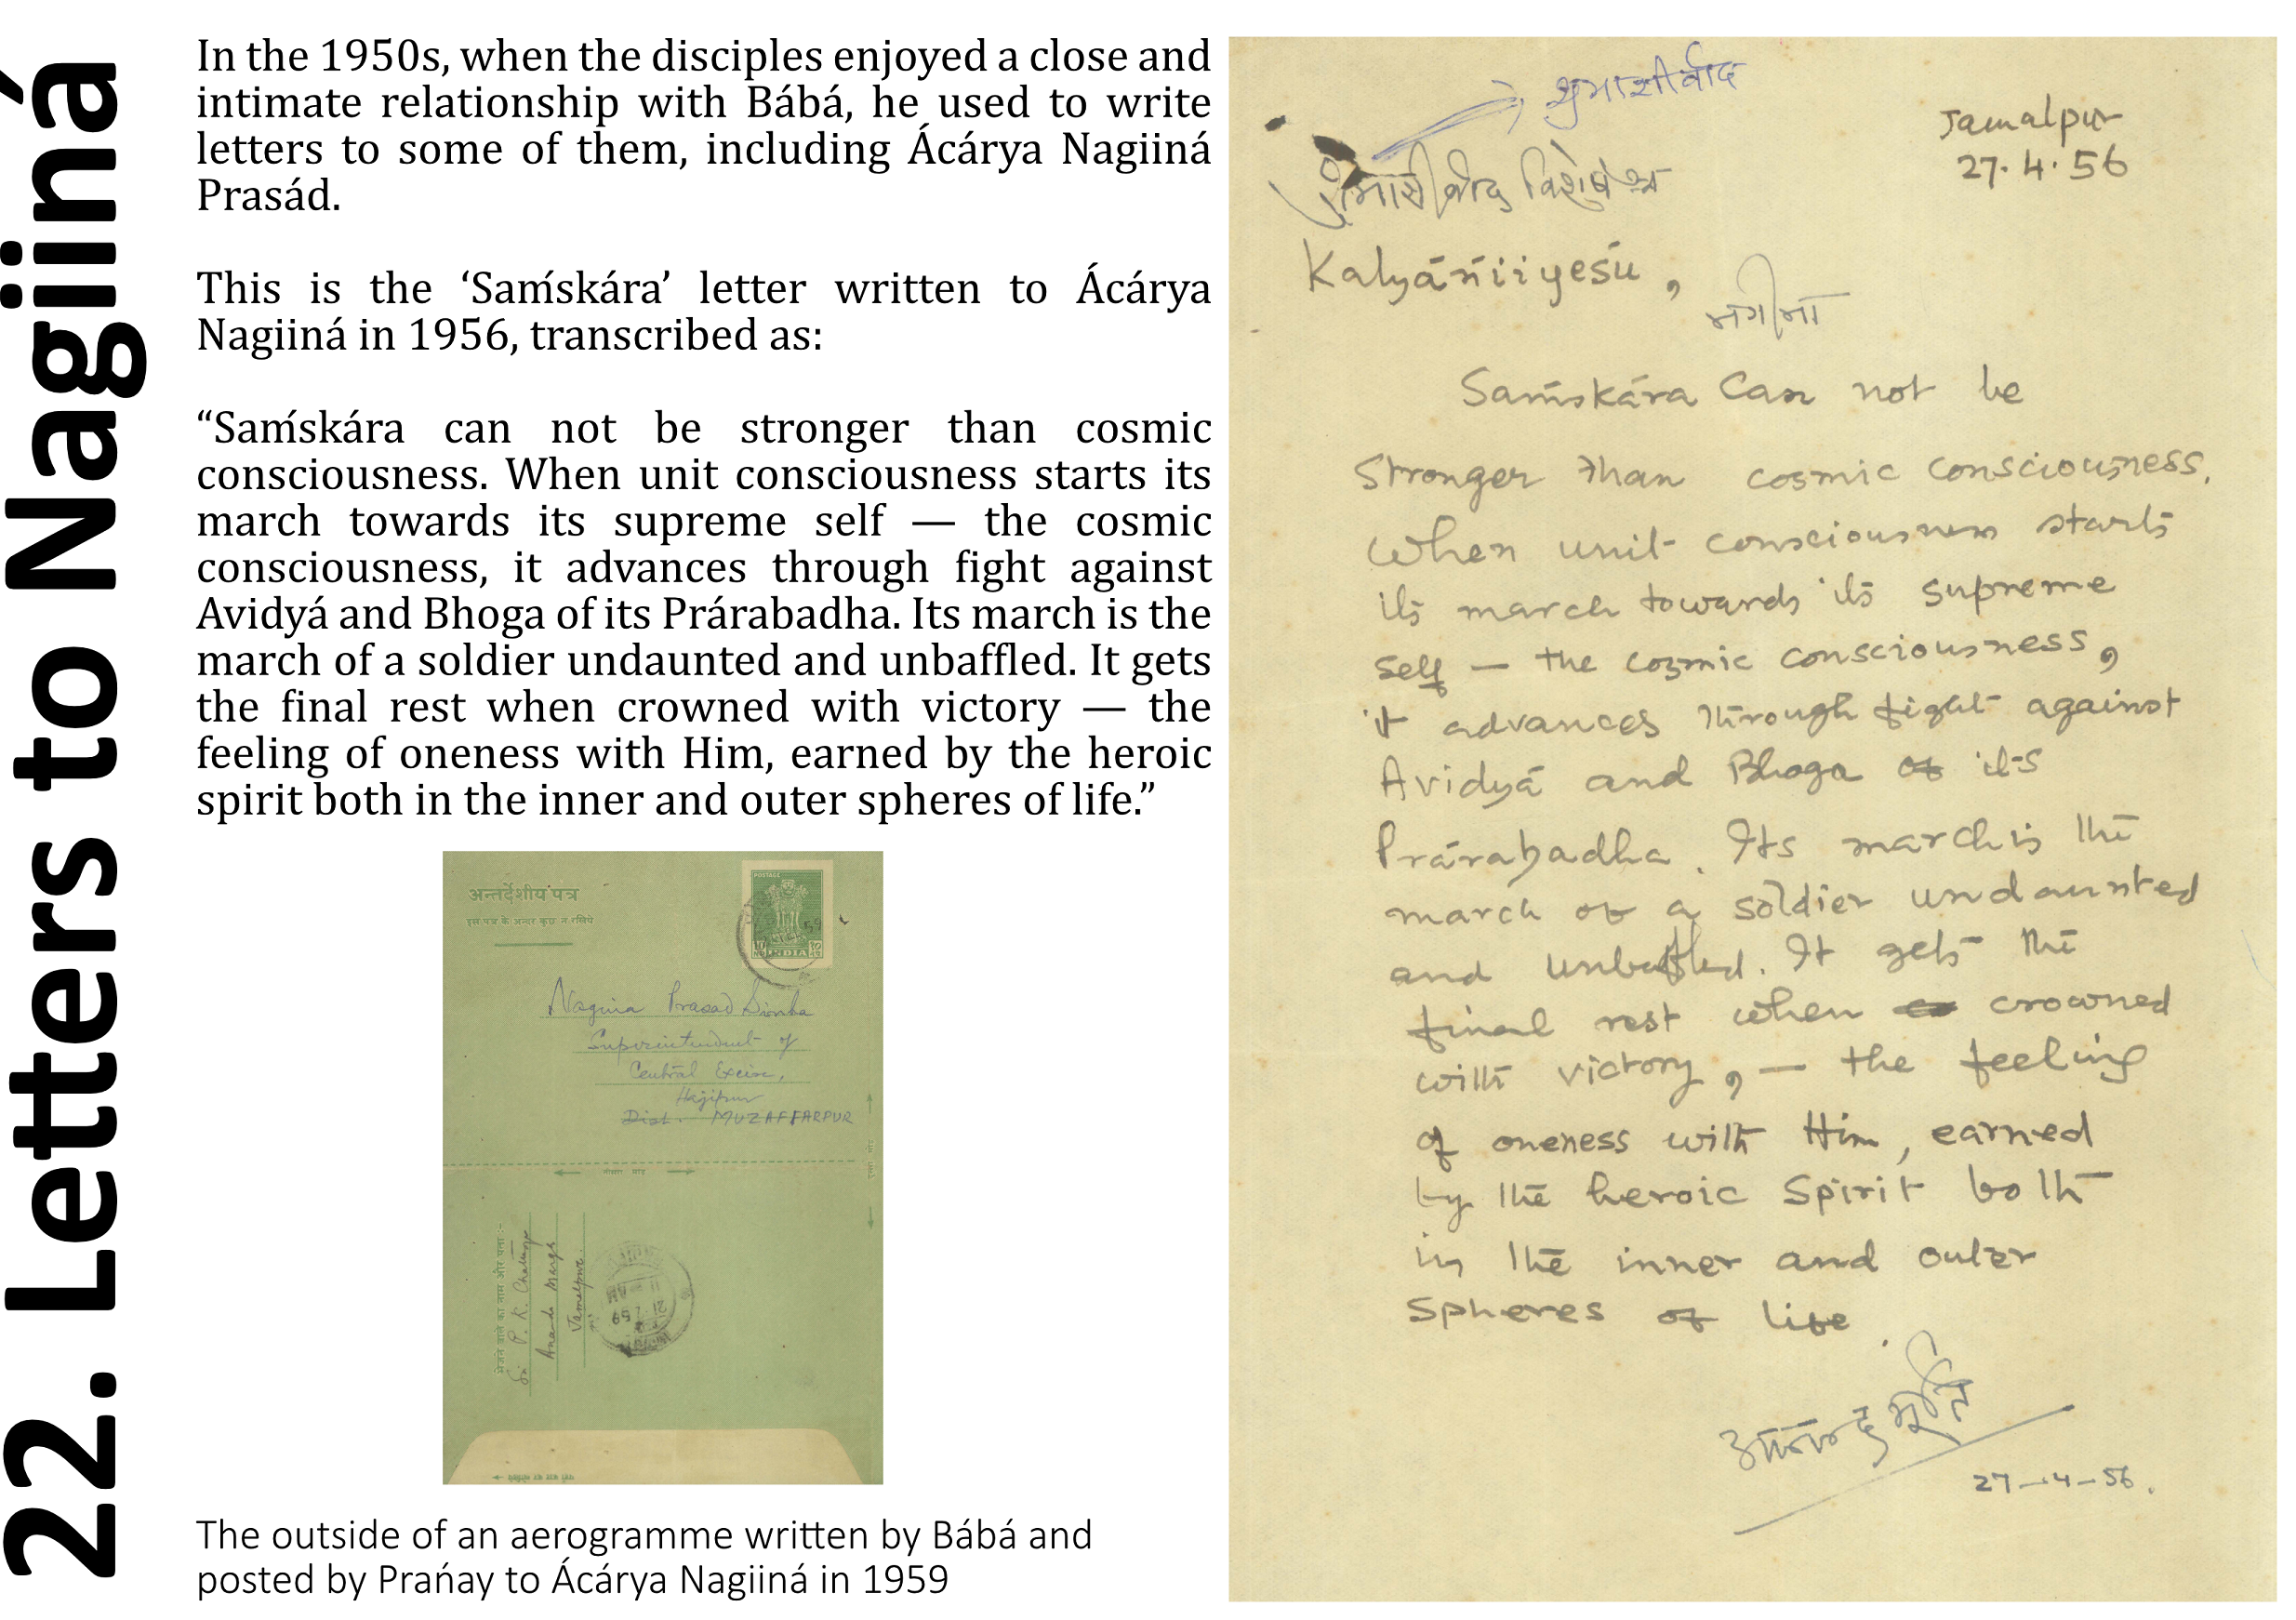 22. Letters to Nagiiná
In the 1950s, when the disciples enjoyed a close and
intimate relationship with Bábá, he used to write
letters to some of them, including Ácárya Nagiiná
Prasád.
This is the ‘Saḿskára’ letter written to Ácárya
Nagiiná in 1956, transcribed as:
“Saḿskára can not be stronger than cosmic
consciousness. When unit consciousness starts its
march towards its supreme self — the cosmic
consciousness, it advances through fight against
Avidyá and Bhoga of its Prárabadha. Its march is the
march of a soldier undaunted and unbaffled. It gets
the final rest when crowned with victory — the
feeling of oneness with Him, earned by the heroic
spirit both in the inner and outer spheres of life.”
अन्तर्देशीय पत्र
इस पत्र के अन्दर कुछ न रखिये
POSTAGE
INDIA
Nagina Prasad Sinha
Superintendent of
Central Excise,
Hajipur
Dist. MUZAFFARPUR
भेजने वाले का नाम और पता :-
P. K. Chatterjee
Ananda Marga
Jamalpur.
The outside of an aerogramme written by Bábá and
posted by Prańay to Ácárya Nagiiná in 1959
शुभाशीर्वाद
Jamalpur
27.4.56
शुभाशीर्वाद विशेष
Kalyáńiiyeśu,
नगीना
Saḿskára Can not be
Stronger than cosmic consciousness.
When unit consciousness starts
its march towards its supreme
self — the cosmic consciousness,
it advances through fight against
Avidyá and Bhoga of its
Prárabadha. Its march is the
march of a soldier undaunted
and unbaffled. It gets the
final rest when crowned
with victory, — the feeling
of oneness with Him, earned
by the heroic Spirit both
in the inner and outer
Spheres of life.
आनन्दमूर्ति
27-4-56.